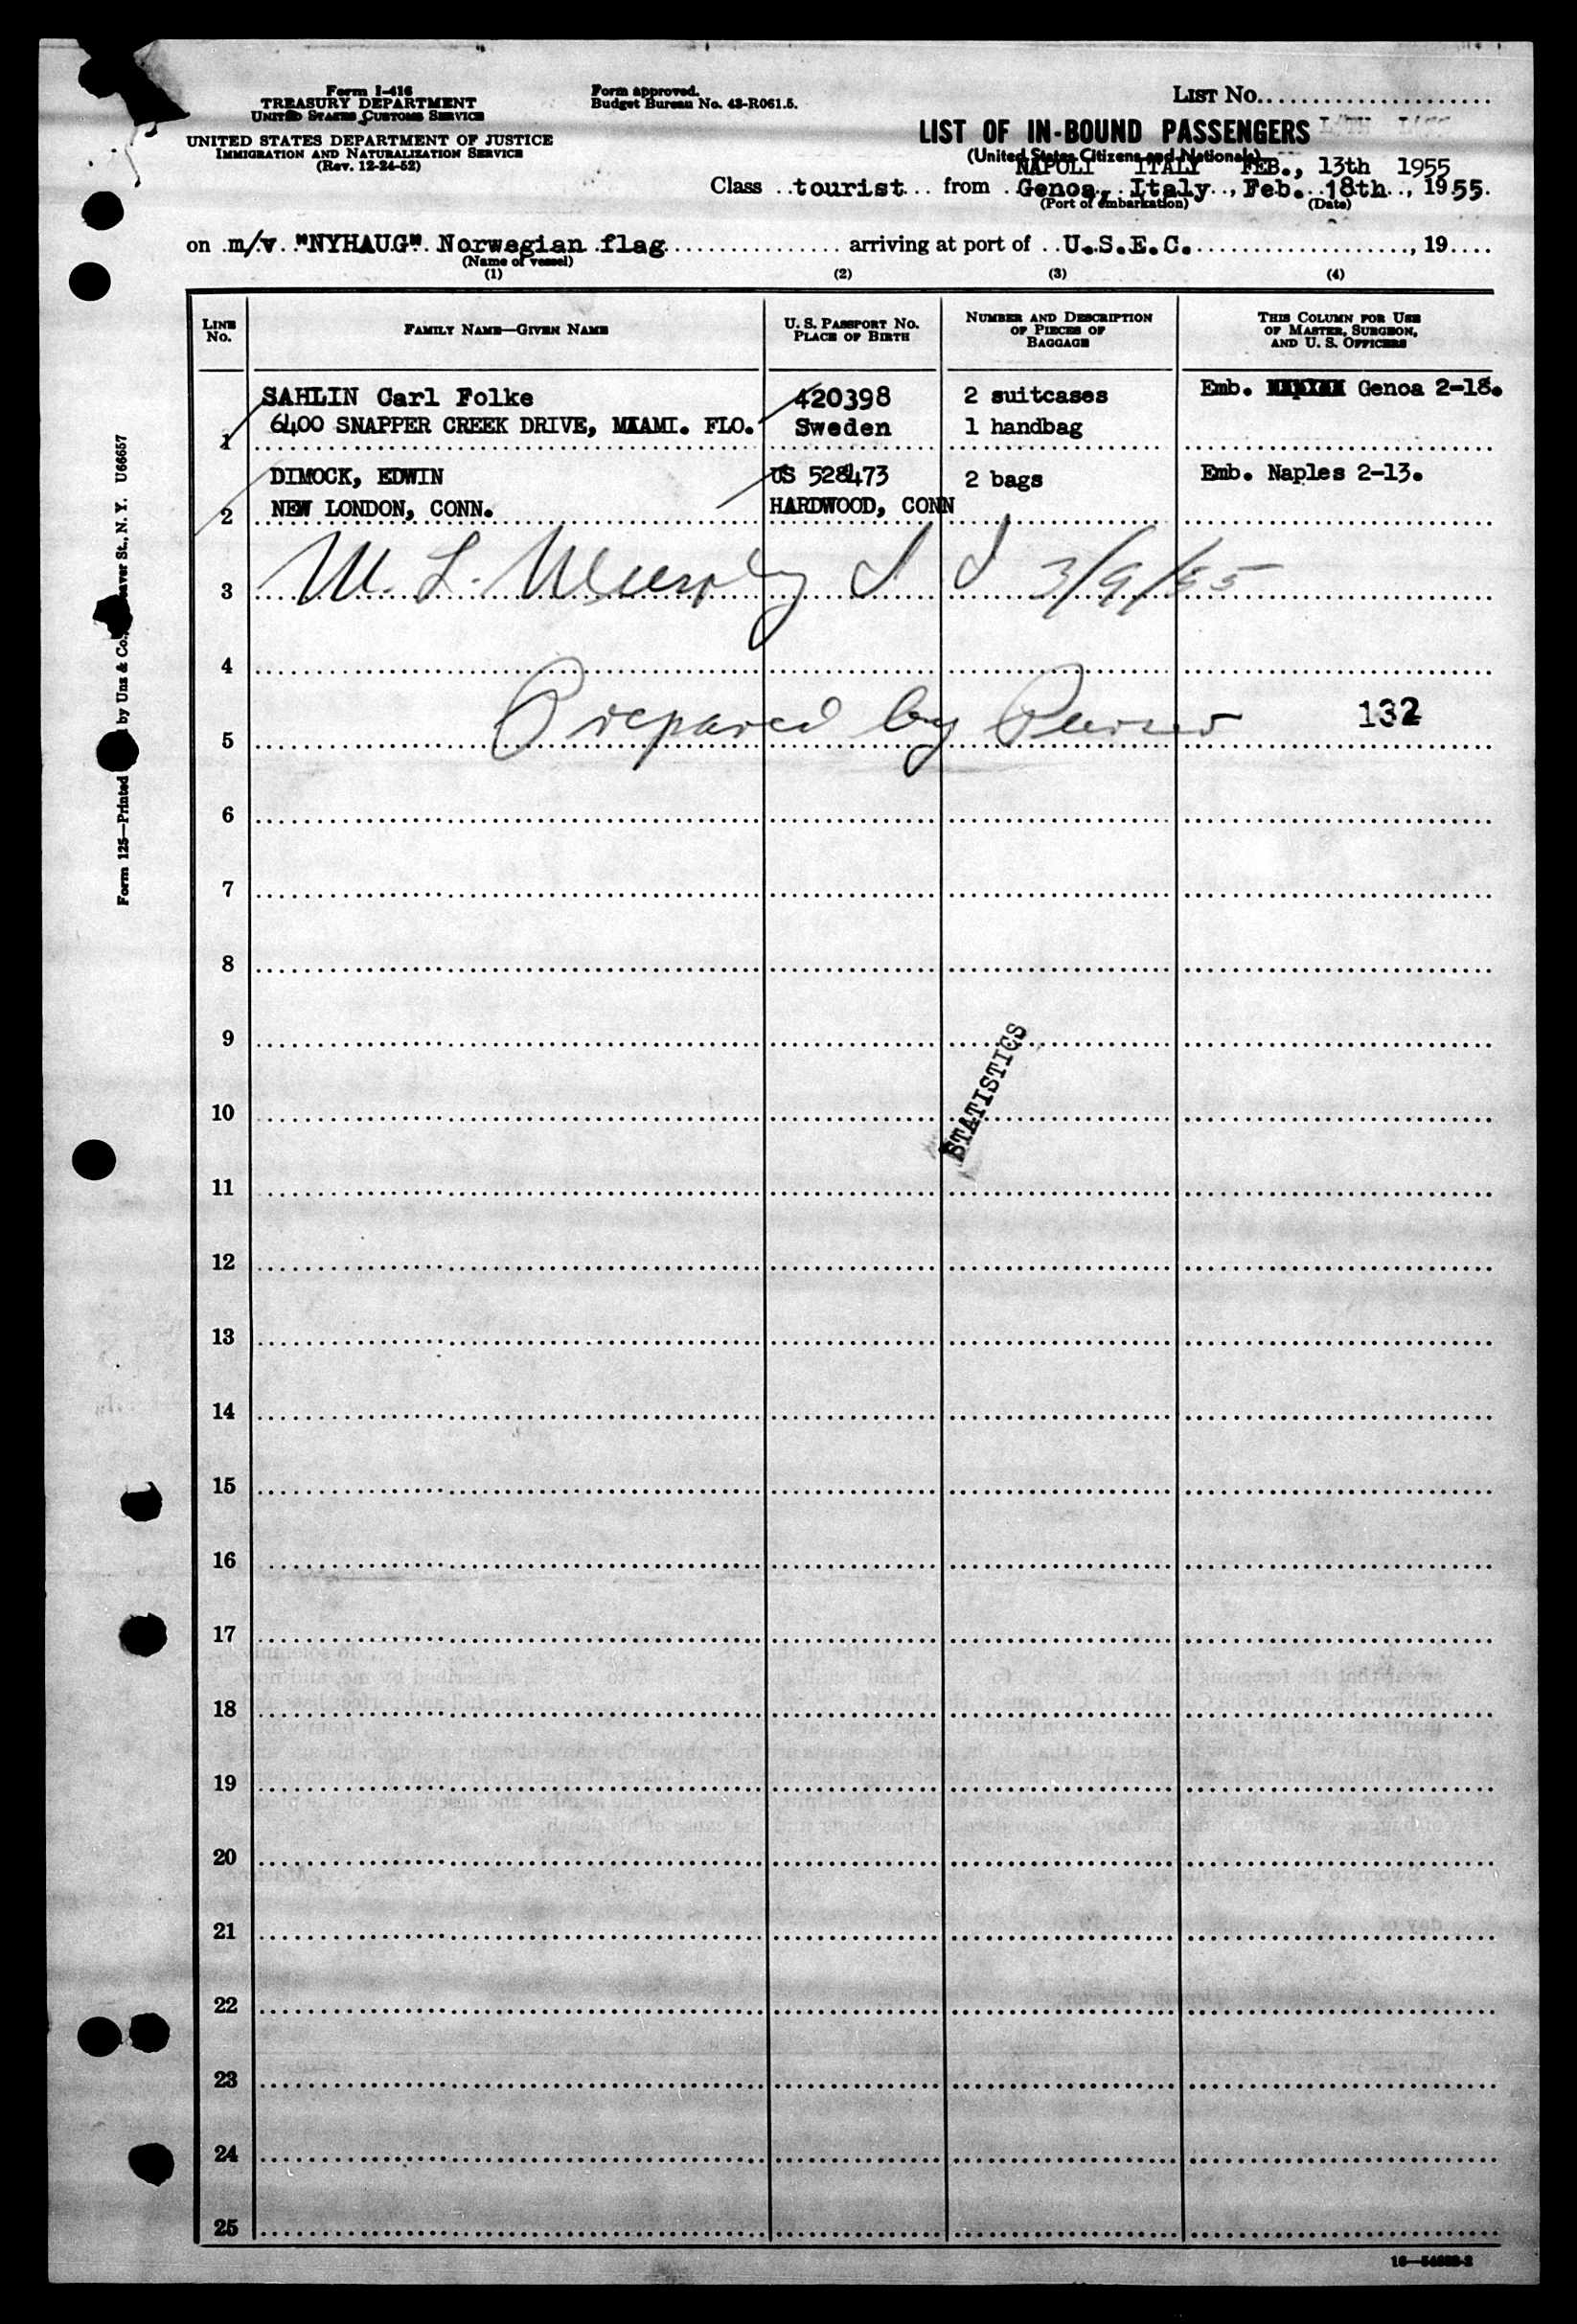 Form I-416
TREASURY DEPARTMENT
UNITED STATES CUSTOMS SERVICE
UNITED STATES DEPARTMENT OF JUSTICE
IMMIGRATION AND NATURALIZATION SERVICE
(Rev. 12-24-52)
Form approved.
Budget Bureau No. 43-R061.5.
LIST NO.
LIST OF IN-BOUND PASSENGERS
(United States Citizens and Nationals)
NAPOLI ITALY FEB., 13th 1955
Class tourist from Genoa, Italy, Feb. 18th, 1955.
(Port of embarkation) (Date)
on m/v "NYHAUG" Norwegian flag arriving at port of U.S.E.C., 19
(Name of vessel)
(1) (2) (3) (4)
LINE NO. FAMILY NAME—GIVEN NAME U. S. PASSPORT NO. PLACE OF BIRTH NUMBER AND DESCRIPTION OF PIECES OF BAGGAGE THIS COLUMN FOR USE OF MASTER, SURGEON, AND U. S. OFFICERS
SAHLIN Carl Folke 420398 2 suitcases Emb. Genoa 2-18.
1 6400 SNAPPER CREEK DRIVE, MIAMI. FLO. Sweden 1 handbag
DIMOCK, EDWIN US 528473 2 bags Emb. Naples 2-13.
2 NEW LONDON, CONN. HARDWOOD, CONN
3 M. L. Murphy 3/9/55
4
5 Prepared by Purser 132
6
7
8
9
STATISTICS
10
11
12
13
14
15
16
17
18
19
20
21
22
23
24
25
Form 125—Printed by Unz & Co., Beaver St., N. Y. U66657